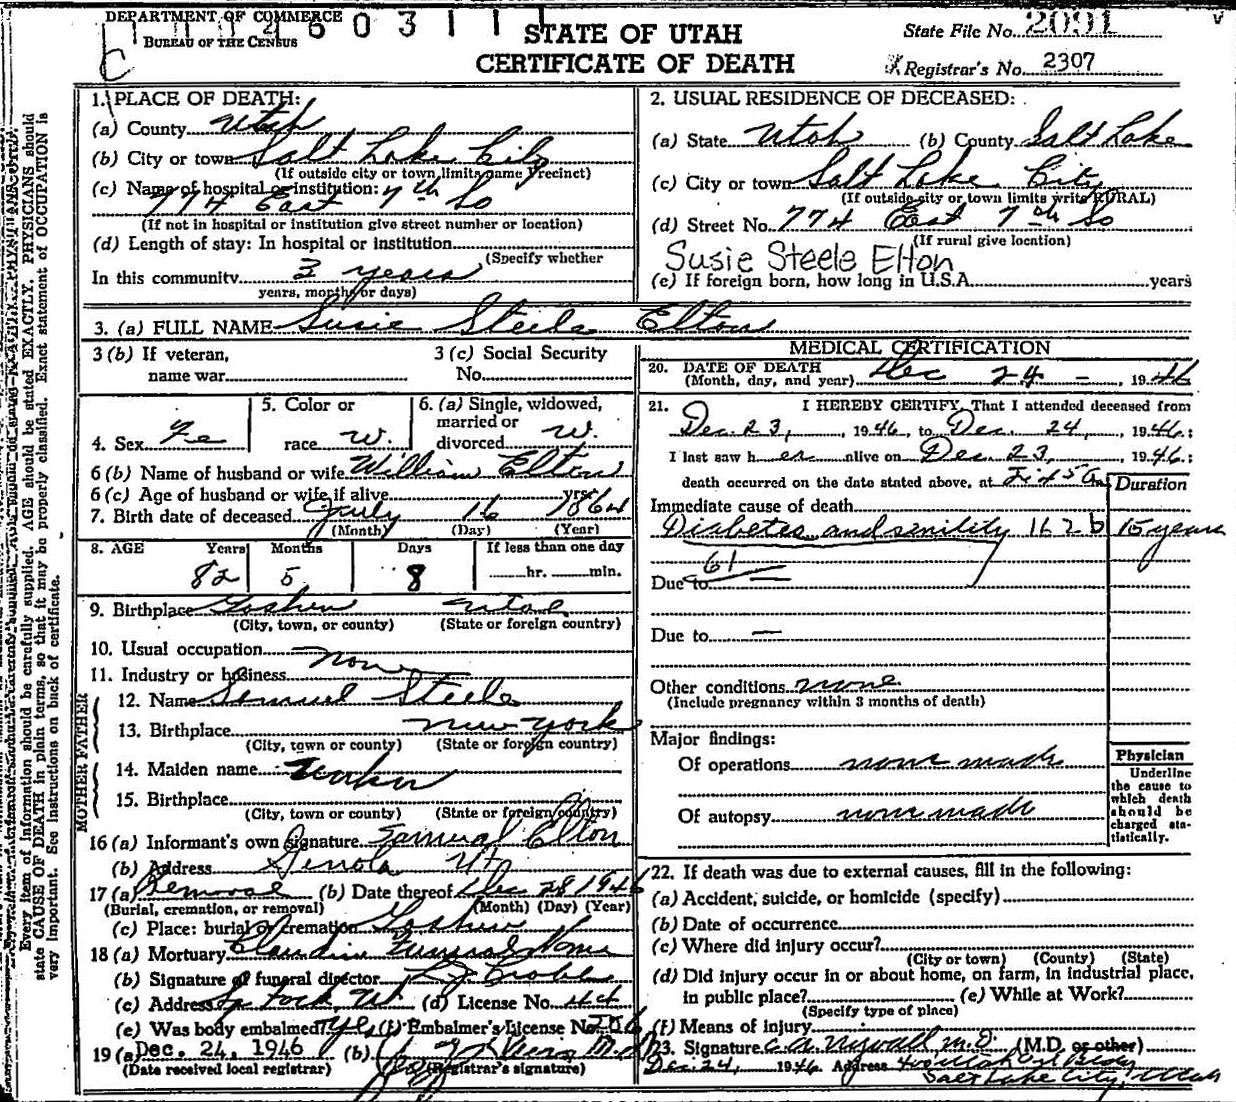 DEPARTMENT OF COMMERCE
BUREAU OF THE CENSUS
STATE OF UTAH
CERTIFICATE OF DEATH
State File No. 2091
Registrar's No. 2307
1. PLACE OF DEATH:
(a) County Utah
(b) City or town Salt Lake City
(If outside city or town limits name Precinct)
(c) Name of hospital or institution:
774 East 7th So
(If not in hospital or institution give street number or location)
(d) Length of stay: In hospital or institution
(Specify whether
In this community 3 years
years, months or days)
2. USUAL RESIDENCE OF DECEASED:
(a) State Utah (b) County Salt Lake
(c) City or town Salt Lake City
(If outside city or town limits write RURAL)
(d) Street No. 774 East 7th So
(If rural give location)
Susie Steele Elton
(e) If foreign born, how long in U.S.A. years
3. (a) FULL NAME Susie Steele Elton
3 (b) If veteran, name war
3 (c) Social Security No.
4. Sex Fe
5. Color or race W.
6. (a) Single, widowed, married or divorced W.
6 (b) Name of husband or wife William Elton
6 (c) Age of husband or wife if alive yrs.
7. Birth date of deceased July 16 1864
(Month) (Day) (Year)
8. AGE Years Months Days If less than one day
82 5 8 hr. min.
9. Birthplace Goshen Utah
(City, town, or county) (State or foreign country)
10. Usual occupation none
11. Industry or business
FATHER
12. Name Samuel Steele
13. Birthplace New York
(City, town or county) (State or foreign country)
MOTHER
14. Maiden name
15. Birthplace
(City, town or county) (State or foreign country)
16 (a) Informant's own signature Samuel Elton
(b) Address Genola Ut
17 (a) Removal (b) Date thereof Dec 28 1946
(Burial, cremation, or removal) (Month) (Day) (Year)
(c) Place: burial or cremation Goshen
18 (a) Mortuary Claudin Funeral Home
(b) Signature of funeral director
(c) Address Sp Fork, Ut. (d) License No. 44
(e) Was body embalmed? Yes (f) Embalmer's License No. 256
19 (a) Dec. 24, 1946 (b)
(Date received local registrar) (Registrar's signature)
MEDICAL CERTIFICATION
20. DATE OF DEATH
(Month, day, and year) Dec 24 - , 1946
21. I HEREBY CERTIFY, That I attended deceased from
Dec. 23, 1946, to Dec. 24, 1946.;
I last saw her alive on Dec. 23, 1946.;
death occurred on the date stated above, at
Duration
Immediate cause of death
Diabetes and senility 162b 15 years
61
Due to —
Due to —
Other conditions none
(Include pregnancy within 3 months of death)
Major findings:
Of operations none made
Of autopsy none made
Physician
Underline the cause to which death should be charged statistically.
22. If death was due to external causes, fill in the following:
(a) Accident, suicide, or homicide (specify)
(b) Date of occurrence
(c) Where did injury occur?
(City or town) (County) (State)
(d) Did injury occur in or about home, on farm, in industrial place,
in public place? (e) While at Work?
(Specify type of place)
(f) Means of injury
23. Signature C. A. Nyvall M.D. (M.D. or other)
Dec. 24, 1946. Address
Salt Lake City, Utah
Every item of information should be carefully supplied. AGE should be stated EXACTLY. PHYSICIANS should
state CAUSE OF DEATH in plain terms, so that it may be properly classified. Exact statement of OCCUPATION is
very important. See instructions on back of certificate.